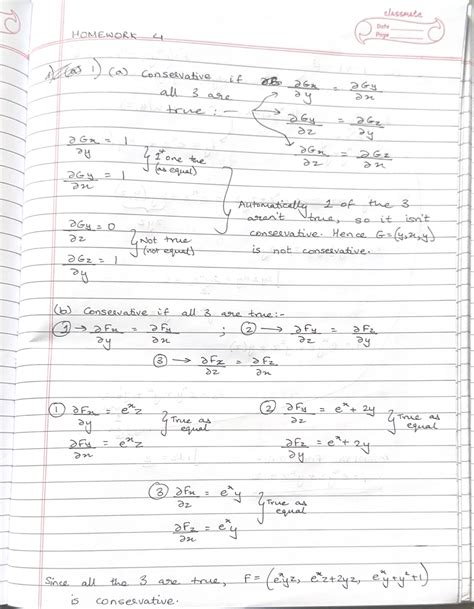 classmate
Date
Page
HOMEWORK 4
1) (a) Conservative if all 3 are true :-
∂Gx/∂y = ∂Gy/∂x
∂Gy/∂z = ∂Gz/∂y
∂Gx/∂z = ∂Gz/∂x
∂Gx/∂y = 1
∂Gy/∂x = 1
1st one true (as equal)
∂Gy/∂z = 0
∂Gz/∂y = 1
Not true (not equal)
Automatically 1 of the 3
aren't true, so it isn't
conservative. Hence G=(y,x,y)
is not conservative.
(b) Conservative if all 3 are true:-
① → ∂Fx/∂y = ∂Fy/∂x ; ② → ∂Fy/∂z = ∂Fz/∂y
③ → ∂Fx/∂z = ∂Fz/∂x
① ∂Fx/∂y = e^x z
∂Fy/∂x = e^x z
True as equal
② ∂Fy/∂z = e^x + 2y
∂Fz/∂y = e^x + 2y
True as equal
③ ∂Fx/∂z = e^x y
∂Fz/∂x = e^x y
True as equal
Since all the 3 are true, F = (e^x yz, e^x z+2yz, e^x y+y^2+1)
is conservative.